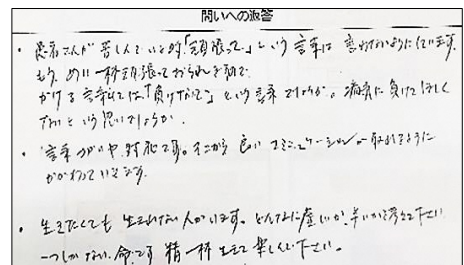 問いへの返答
・患者さんが苦しんでいる時「頑張って」という言葉は言わないようにしています。
もう、めいいっぱい頑張っておられるわけで、
かける言葉としては「負けないで」という言葉でしょうか。病気に負けてほしく
ないという思いでしょうか。
・言葉づかいや、対応です。そこから良いコミュニケーションが取れるように
かかわっています。
・生きたくても生きれない人がいます。どんなに虚しいか、辛いか考えて下さい
一つしかない命です 精一杯生きて楽しんで下さい。